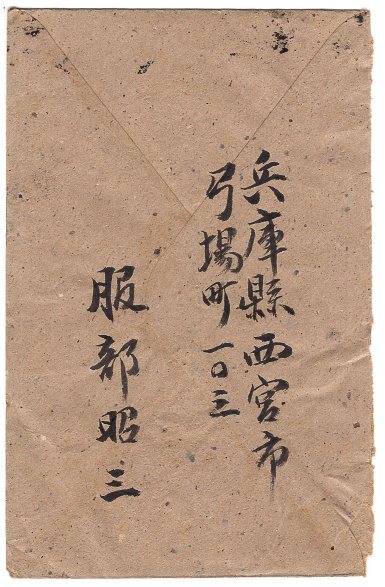 兵庫縣西宮市
弓場町一〇三
服部昭三